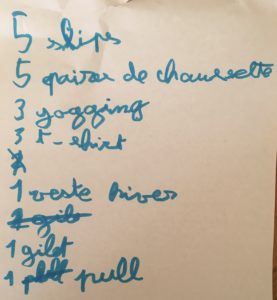 5 slips
5 paires de chaussette
3 yogging
3 t-shirt
1 veste hiver
1 gilet
1 pull